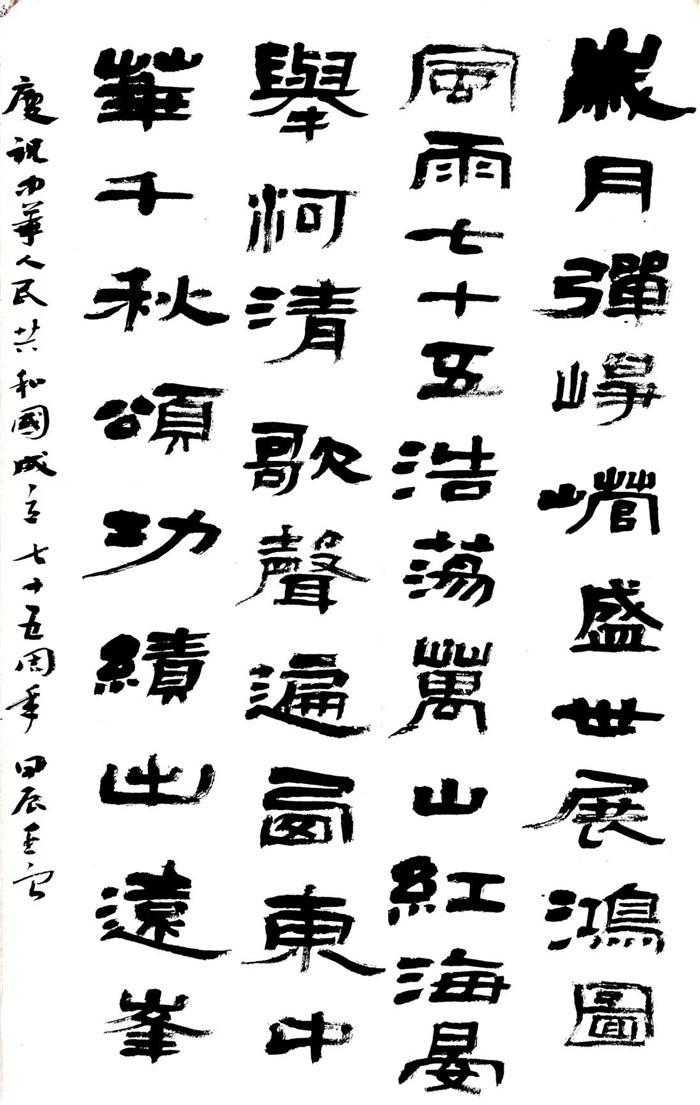 歲月彈崢嶸盛世展鴻圖
風雨七十五浩蕩萬山紅海晏
舉河清歌聲遍東中
華千秋頌功績出遠峯
慶祝中華人民共和國成立七十五周年 甲辰